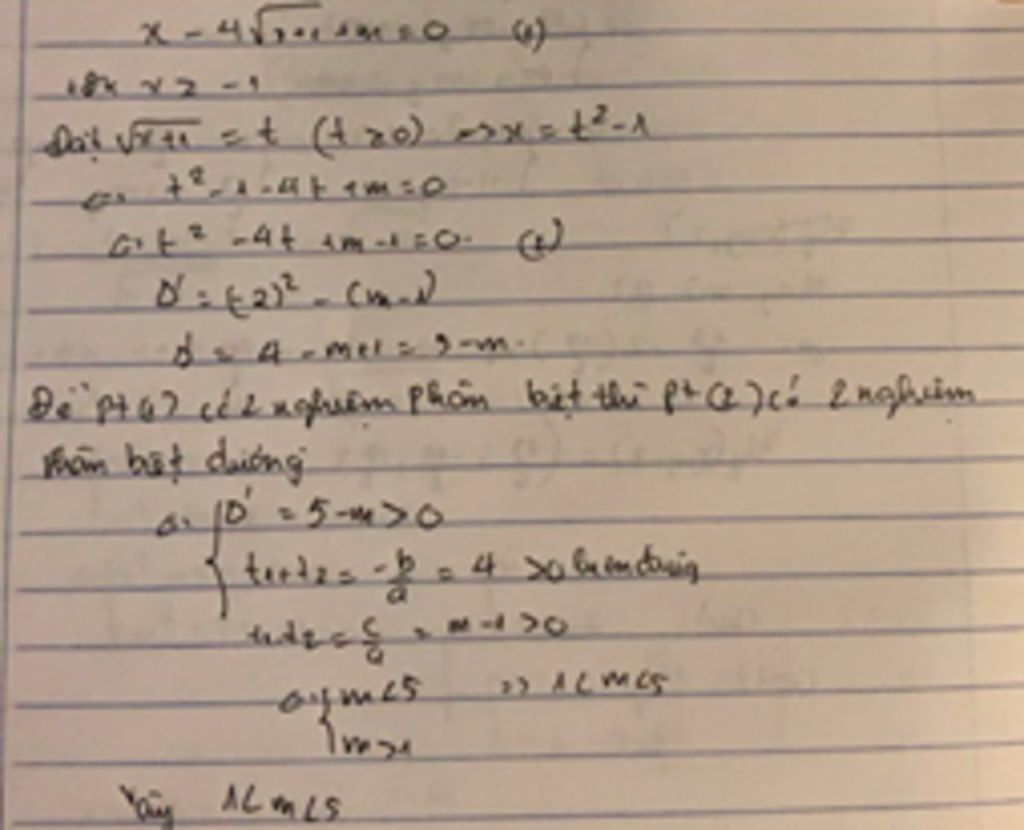 x - 4√x+1 + m = 0 (1)
ĐK x ≥ -1
Đặt √x+1 = t (t ≥ 0) => x = t² - 1
<=> t² - 1 - 4t + m = 0
<=> t² - 4t + m - 1 = 0. (2)
Δ' = (-2)² - (m-1)
Δ' = 4 - m+1 = 5-m.
Để pt (1) có 2 nghiệm phân biệt thì pt (2) có 2 nghiệm
phân biệt dương
<=> { Δ' = 5-m > 0
t₁+t₂ = -b/a = 4 >0 luôn đúng
t₁.t₂ = c/a = m-1 >0
<=> { m<5 => 1<m<5
m>1
Vậy 1<m<5